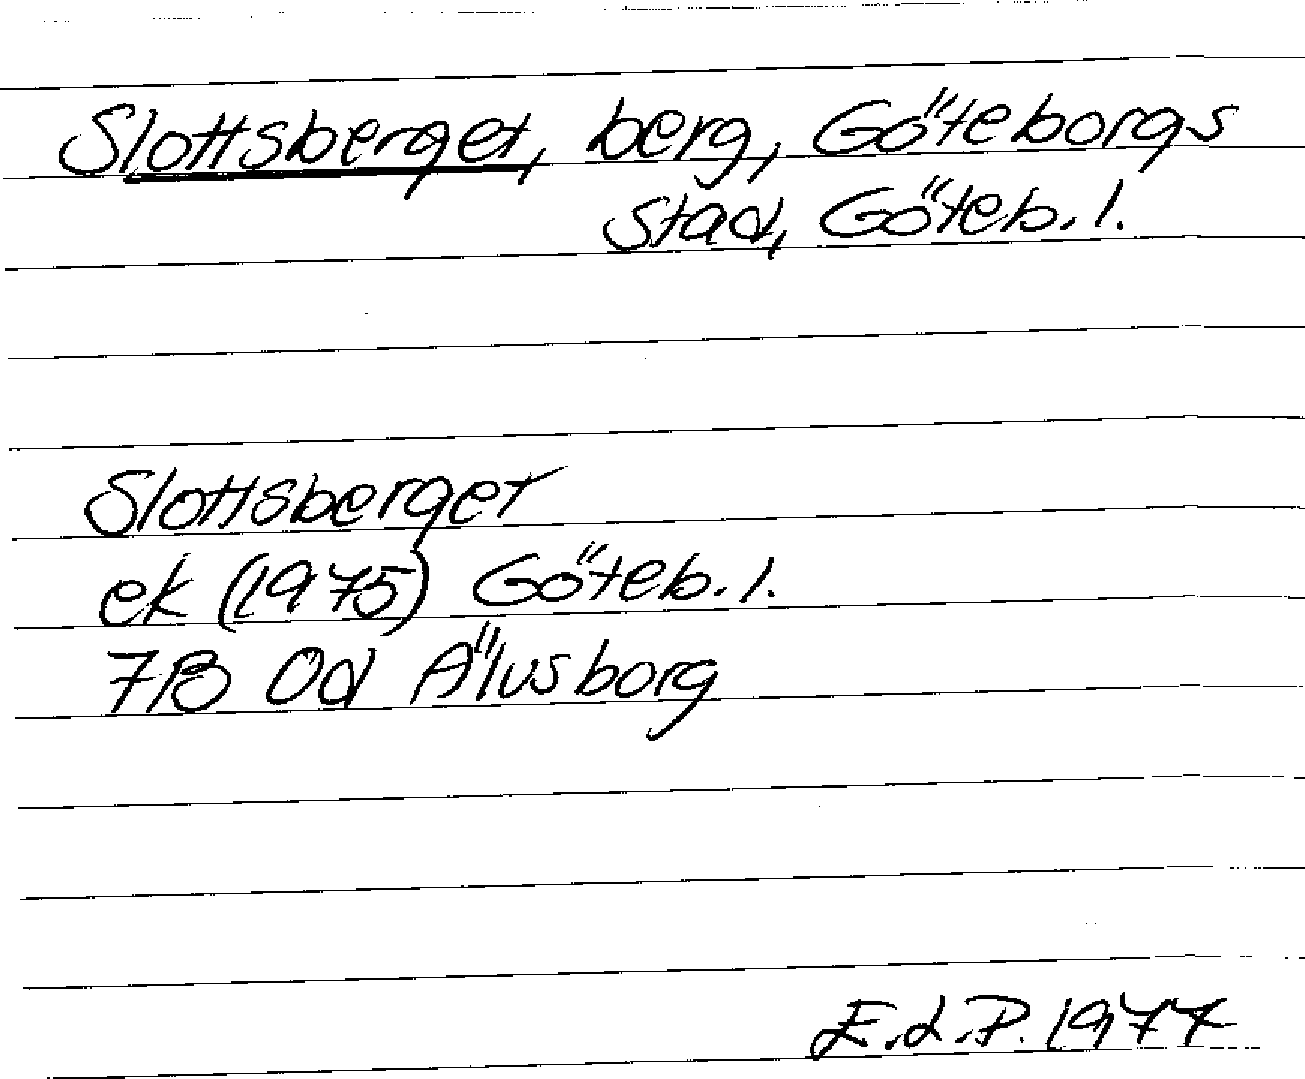 Slottsberget, berg, Göteborgs
stad, Göteb. l.
Slottsberget
ek (1975) Göteb. l.
7B 0d Älvsborg
E.L.P. 1977